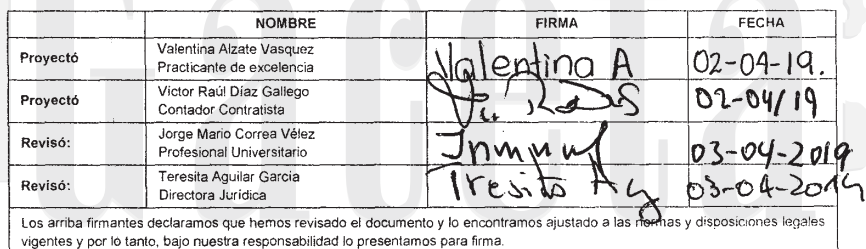 NOMBRE FIRMA FECHA
Proyectó Valentina Alzate Vasquez
Practicante de excelencia Valentina A 02-04-19.
Proyectó Víctor Raúl Díaz Gallego
Contador Contratista 02-04/19
Revisó: Jorge Mario Correa Vélez
Profesional Universitario 03-04-2019
Revisó: Teresita Aguilar García
Directora Jurídica Tresita Ag 03-04-2019
Los arriba firmantes declaramos que hemos revisado el documento y lo encontramos ajustado a las normas y disposiciones legales
vigentes y por lo tanto, bajo nuestra responsabilidad lo presentamos para firma.